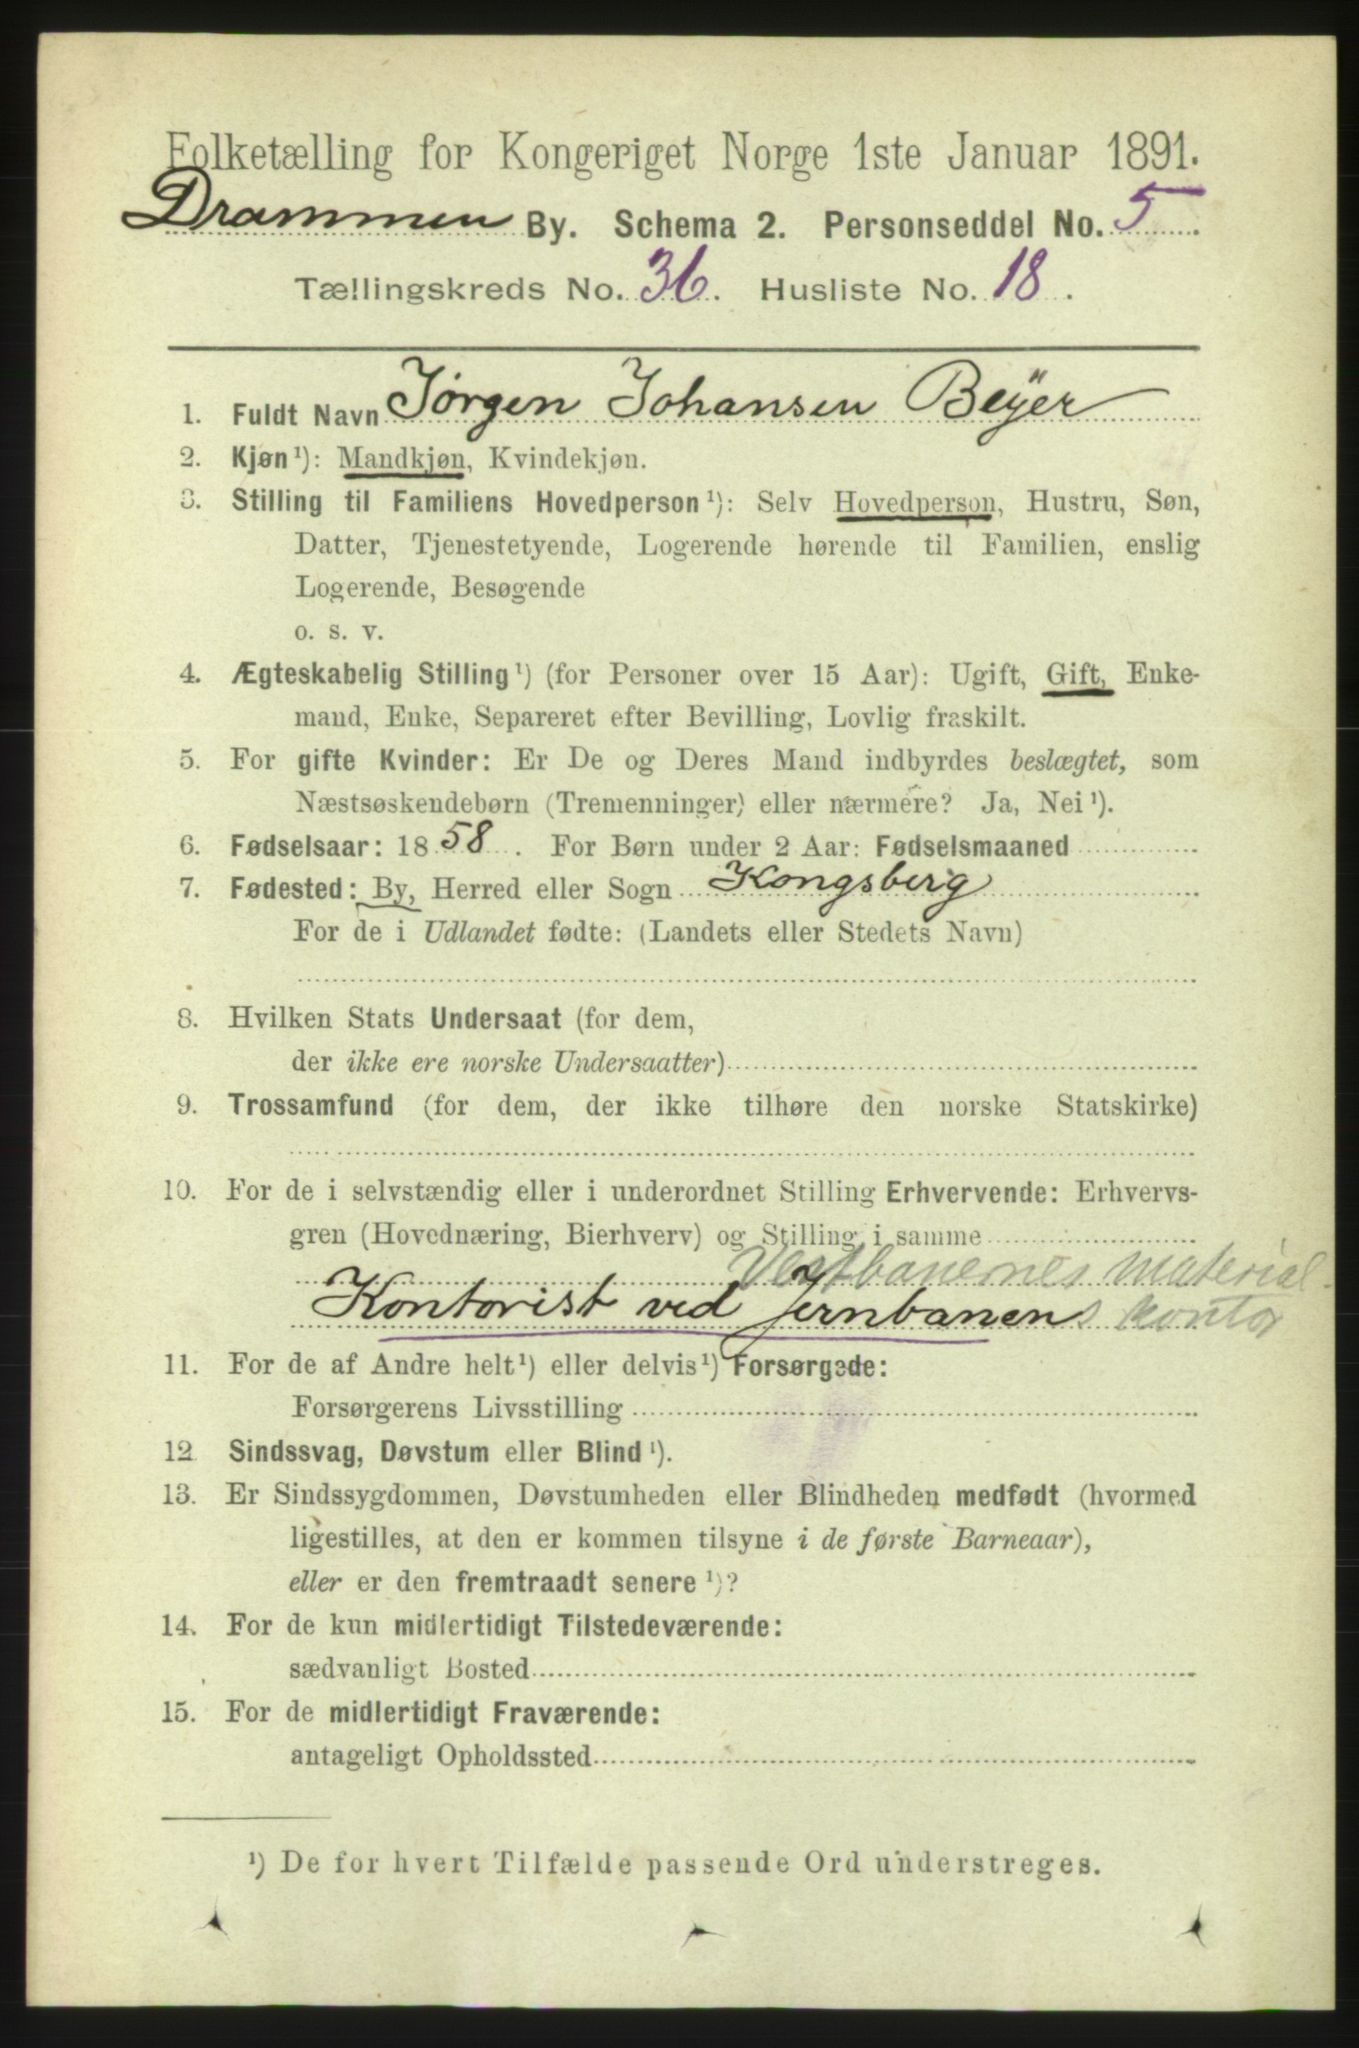 Folketælling for Kongeriget Norge 1ste Januar 1891.
Drammen By. Schema 2. Personseddel No. 5
Tællingskreds No. 36. Husliste No. 18.
1. Fuldt Navn Jørgen Johansen Beÿer
2. Kjøn ¹): Mandkjøn, Kvindekjøn.
3. Stilling til Familiens Hovedperson ¹): Selv Hovedperson, Hustru, Søn,
Datter, Tjenestetyende, Logerende hørende til Familien, enslig
Logerende, Besøgende
o. s. v.
4. Ægteskabelig Stilling ¹) (for Personer over 15 Aar): Ugift, Gift, Enke-
mand, Enke, Separeret efter Bevilling, Lovlig fraskilt.
5. For gifte Kvinder: Er De og Deres Mand indbyrdes beslægtet, som
Næstsøskendebørn (Tremenninger) eller nærmere? Ja, Nei ¹).
6. Fødselsaar: 1858. For Børn under 2 Aar: Fødselsmaaned
7. Fødested: By, Herred eller Sogn Kongsberg
For de i Udlandet fødte: (Landets eller Stedets Navn)
8. Hvilken Stats Undersaat (for dem,
der ikke ere norske Undersaatter)
9. Trossamfund (for dem, der ikke tilhøre den norske Statskirke)
10. For de i selvstændig eller i underordnet Stilling Erhvervende: Erhvervs-
gren (Hovednæring, Bierhverv) og Stilling i samme
Vestbanernes material-
Kontorist ved Jernbanens kontor
11. For de af Andre helt ¹) eller delvis ¹) Forsørgede:
Forsørgerens Livsstilling
12 Sindssvag, Døvstum eller Blind ¹).
13. Er Sindssygdommen, Døvstumheden eller Blindheden medfødt (hvormed
ligestilles, at den er kommen tilsyne i de første Barneaar),
eller er den fremtraadt senere ¹)?
14. For de kun midlertidigt Tilstedeværende:
sædvanligt Bosted
15. For de midlertidigt Fraværende:
antageligt Opholdssted
¹) De for hvert Tilfælde passende Ord understreges.